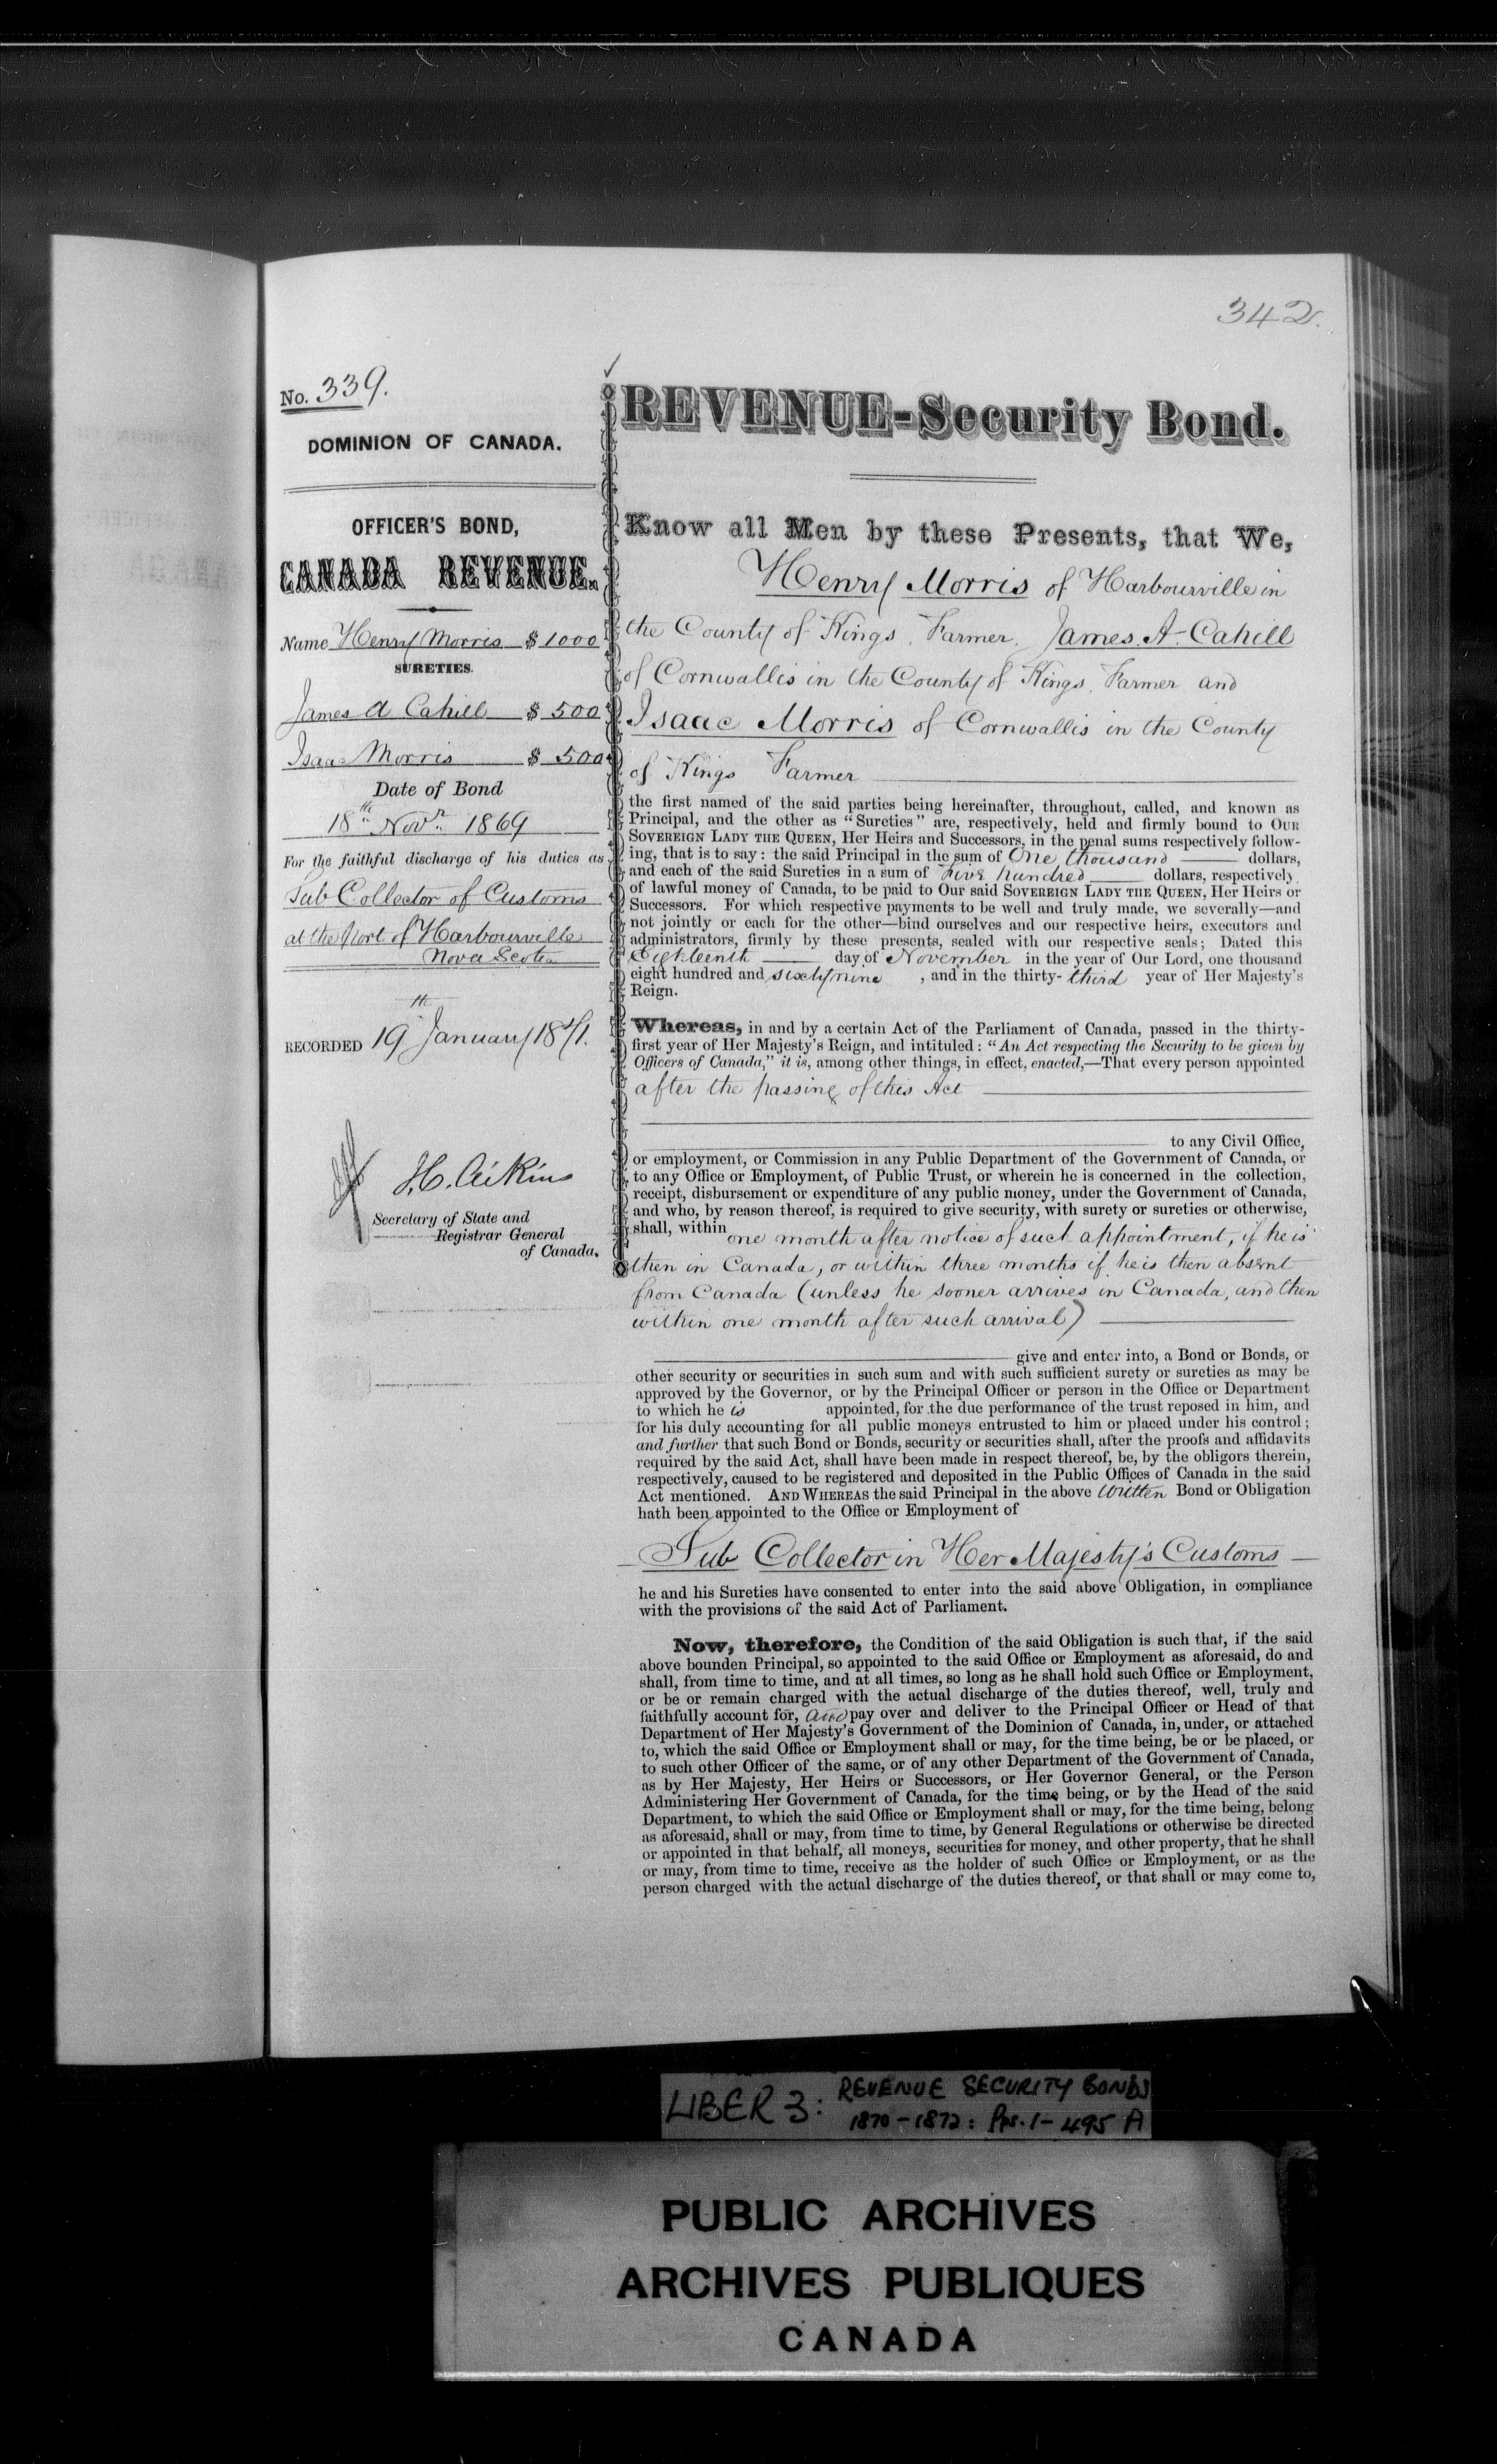 342.
No. 339.
DOMINION OF CANADA.
OFFICER'S BOND,
CANADA REVENUE.
Name Henry Morris $ 1000
SURETIES.
James A Cahill $ 500
Isaac Morris $ 500
Date of Bond
18th Novr. 1869
For the faithful discharge of his duties as
Sub Collector of Customs
at the Port of Harbourville
Nova Scotia
RECORDED 19th January 1871.
J.C. Aikins
Secretary of State and
Registrar General
of Canada.
REVENUE-Security Bond.
Know all Men by these Presents, that We,
Henry Morris of Harbourville in
the County of Kings, Farmer, James A. Cahill
of Cornwallis in the County of Kings, Farmer and
Isaac Morris of Cornwallis in the County
of Kings Farmer
the first named of the said parties being hereinafter, throughout, called, and known as
Principal, and the other as "Sureties" are, respectively, held and firmly bound to OUR
SOVEREIGN LADY THE QUEEN, Her Heirs and Successors, in the penal sums respectively follow-
ing, that is to say: the said Principal in the sum of One thousand dollars,
and each of the said Sureties in a sum of Five hundred dollars, respectively
of lawful money of Canada, to be paid to Our said SOVEREIGN LADY THE QUEEN, Her Heirs or
Successors. For which respective payments to be well and truly made, we severally—and
not jointly or each for the other—bind ourselves and our respective heirs, executors and
administrators, firmly by these presents, sealed with our respective seals; Dated this
Eighteenth day of November in the year of Our Lord, one thousand
eight hundred and sixty nine, and in the thirty-third year of Her Majesty's
Reign.
Whereas, in and by a certain Act of the Parliament of Canada, passed in the thirty-
first year of Her Majesty's Reign, and intituled: "An Act respecting the Security to be given by
Officers of Canada," it is, among other things, in effect, enacted,—That every person appointed
after the passing of this Act
to any Civil Office,
or employment, or Commission in any Public Department of the Government of Canada, or
to any Office or Employment, of Public Trust, or wherein he is concerned in the collection,
receipt, disbursement or expenditure of any public money, under the Government of Canada,
and who, by reason thereof, is required to give security, with surety or sureties or otherwise,
shall, within one month after notice of such appointment, if he is
then in Canada, or within three months if he is then absent
from Canada (unless he sooner arrives in Canada, and then
within one month after such arrival)
give and enter into, a Bond or Bonds, or
other security or securities in such sum and with such sufficient surety or sureties as may be
approved by the Governor, or by the Principal Officer or person in the Office or Department
to which he is appointed, for the due performance of the trust reposed in him, and
for his duly accounting for all public moneys entrusted to him or placed under his control;
and further that such Bond or Bonds, security or securities shall, after the proofs and affidavits
required by the said Act, shall have been made in respect thereof, be, by the obligors therein,
respectively, caused to be registered and deposited in the Public Offices of Canada in the said
Act mentioned. AND WHEREAS the said Principal in the above written Bond or Obligation
hath been appointed to the Office or Employment of
Sub Collector in Her Majesty's Customs
he and his Sureties have consented to enter into the said above Obligation, in compliance
with the provisions of the said Act of Parliament.
Now, therefore, the Condition of the said Obligation is such that, if the said
above bounden Principal, so appointed to the said Office or Employment as aforesaid, do and
shall, from time to time, and at all times, so long as he shall hold such Office or Employment,
or be or remain charged with the actual discharge of the duties thereof, well, truly and
faithfully account for, and pay over and deliver to the Principal Officer or Head of that
Department of Her Majesty's Government of the Dominion of Canada, in, under, or attached
to, which the said Office or Employment shall or may, for the time being, be or be placed, or
to such other Officer of the same, or of any other Department of the Government of Canada,
as by Her Majesty, Her Heirs or Successors, or Her Governor General, or the Person
Administering Her Government of Canada, for the time being, or by the Head of the said
Department, to which the said Office or Employment shall or may, for the time being, belong
as aforesaid, shall or may, from time to time, by General Regulations or otherwise be directed
or appointed in that behalf, all moneys, securities for money, and other property, that he shall
or may, from time to time, receive as the holder of such Office or Employment, or as the
person charged with the actual discharge of the duties thereof, or that shall or may come to,
LIBER 3: REVENUE SECURITY BONDS
1870-1872: Pps. 1-495 A
PUBLIC ARCHIVES
ARCHIVES PUBLIQUES
CANADA